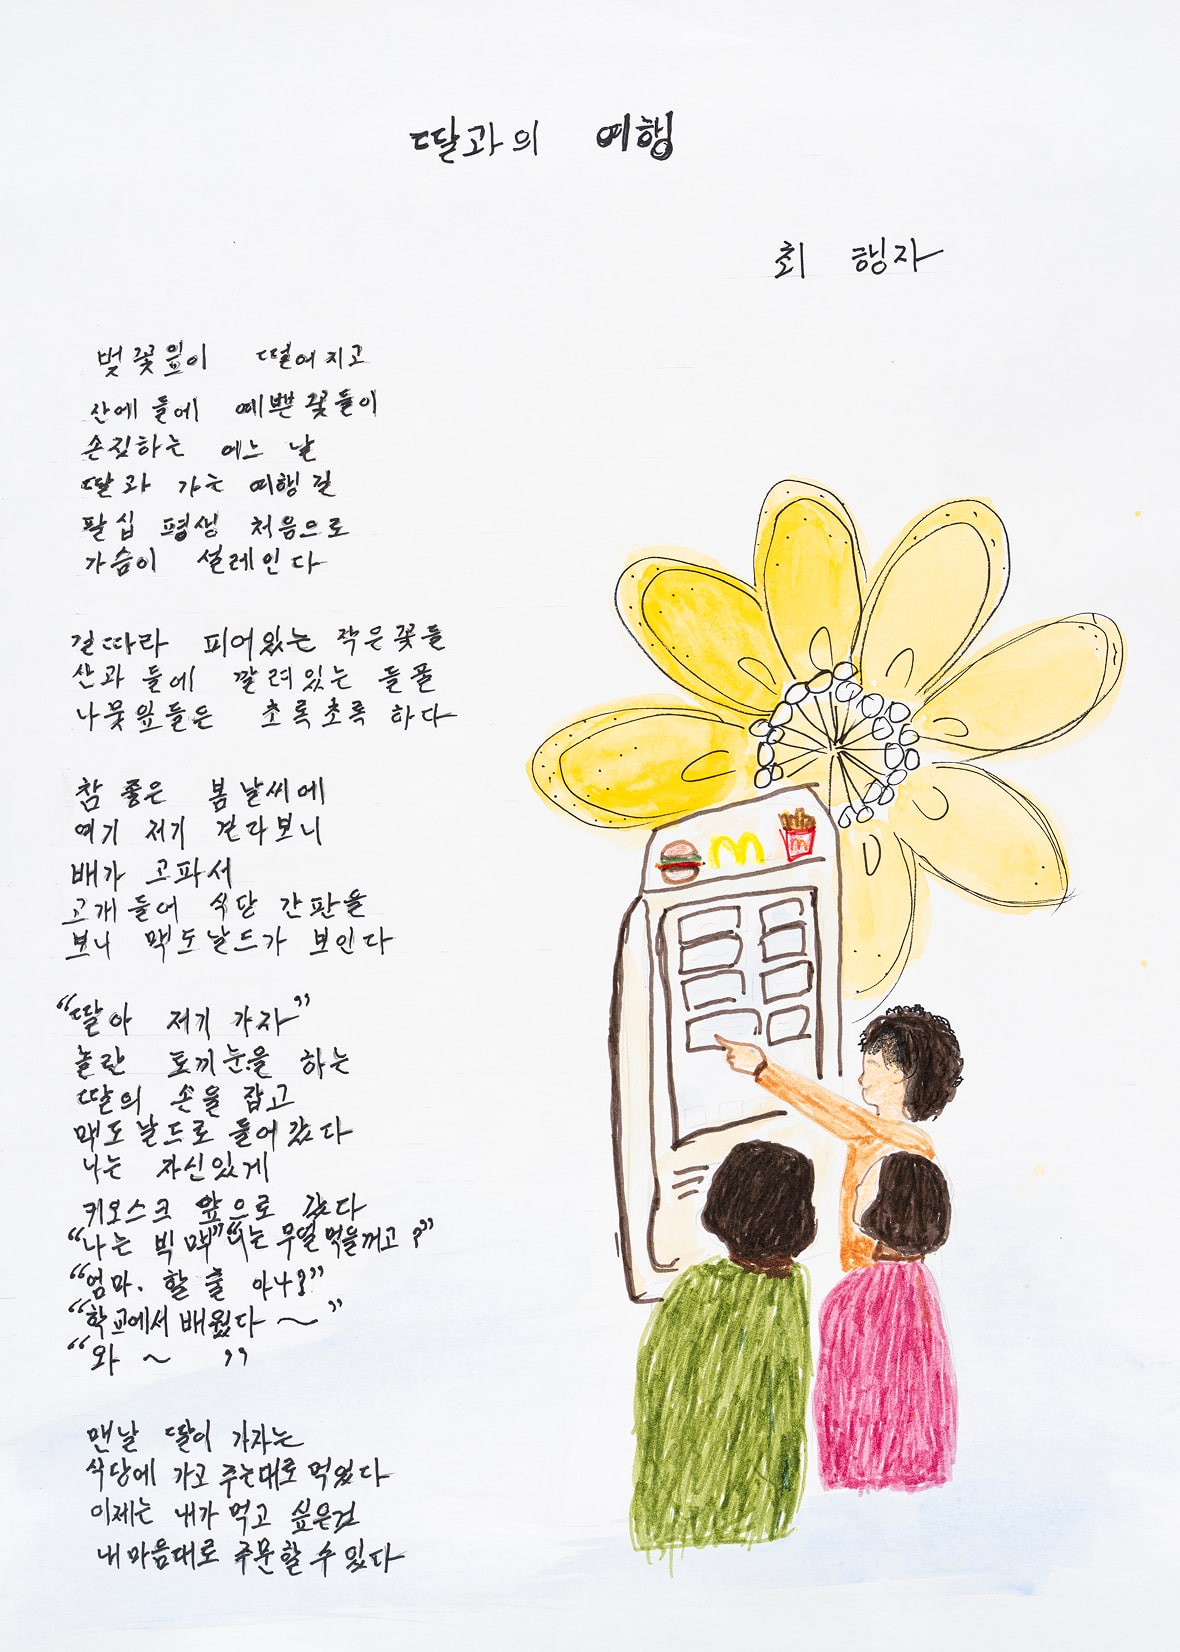 딸과의 여행
최 행자
벚꽃잎이 떨어지고
산에 들에 예쁜 꽃들이
손짓하는 어느 날
딸과 가는 여행길
팔십 평생 처음으로
가슴이 설레인다
길따라 피어있는 작은꽃들
산과 들에 깔려있는 들풀
나뭇잎들은 초록초록 하다
참 좋은 봄날씨에
여기 저기 걷다보니
배가 고파서
고개들어 식당 간판을
보니 맥도날드가 보인다
“딸아 저기 가자”
놀란 토끼눈을 하는
딸의 손을 잡고
맥도날드로 들어갔다
나는 자신있게
키오스크 앞으로 갔다
“나는 빅맥” “너는 무얼 먹을꺼고?”
“엄마. 할 줄 아나?”
“학교에서 배웠다 ~”
“와 ~ ”
맨날 딸이 가자는
식당에 가고 주는대로 먹었다
이제는 내가 먹고 싶은걸
내마음대로 주문할 수 있다